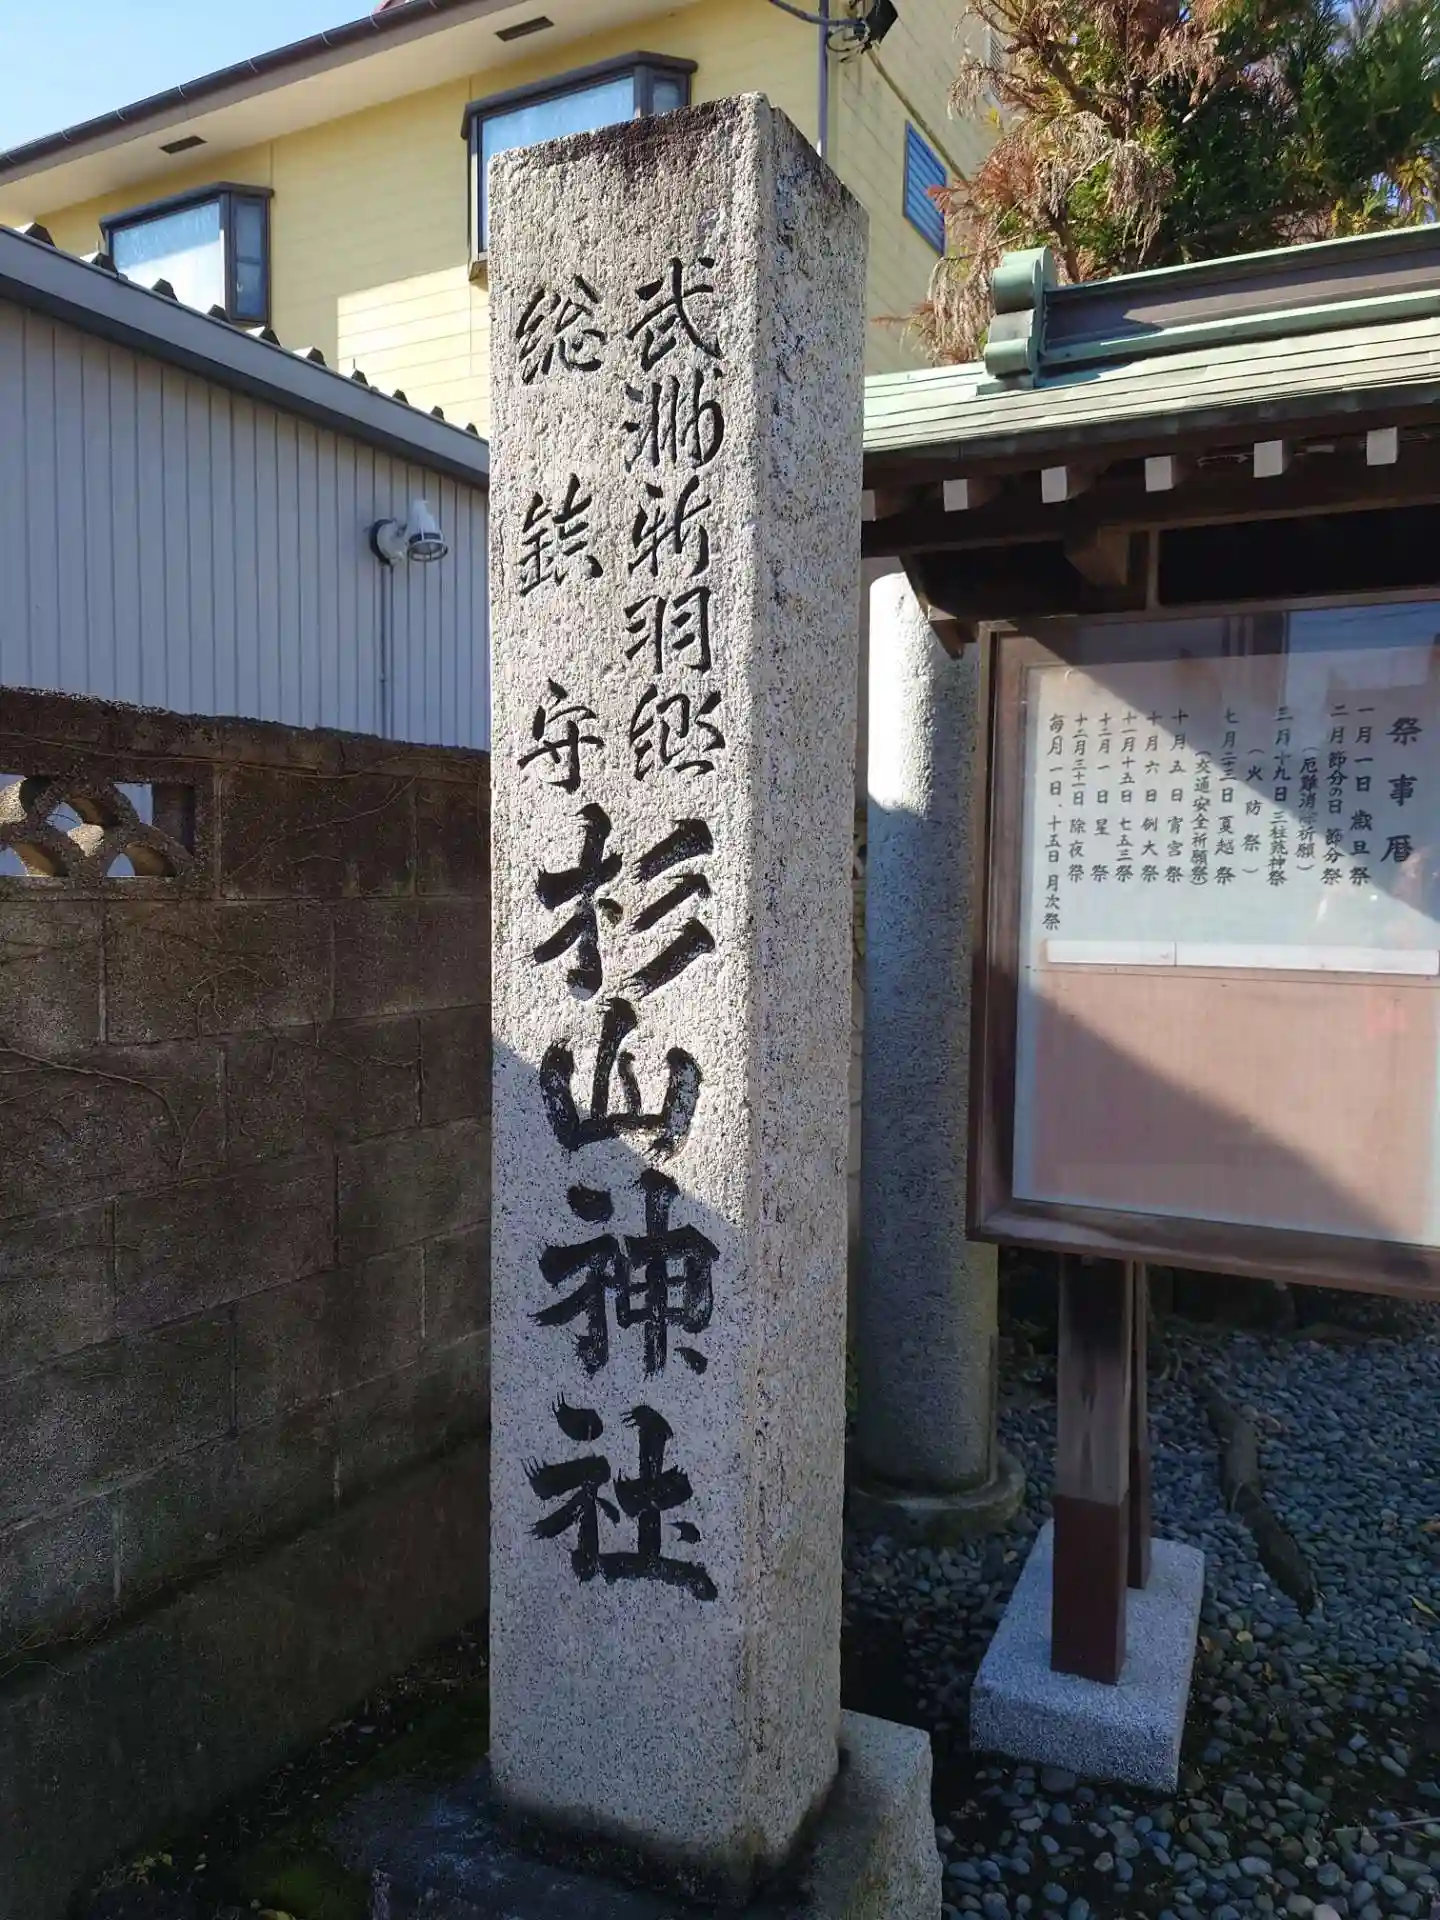 武洲新羽郷
総鎮守
杉山神社
祭事暦
一月一日 歳旦祭
二月節分の日 節分祭
(厄難消除祈願)
三月十九日 三柱荒神祭
(火防祭)
七月三十三日 夏越祭
(交通安全祈願祭)
十月五日 宵宮祭
十月六日 例大祭
十一月十五日 七五三祭
十二月一日 星祭
十二月三十一日 除夜祭
毎月一日、十五日 月次祭